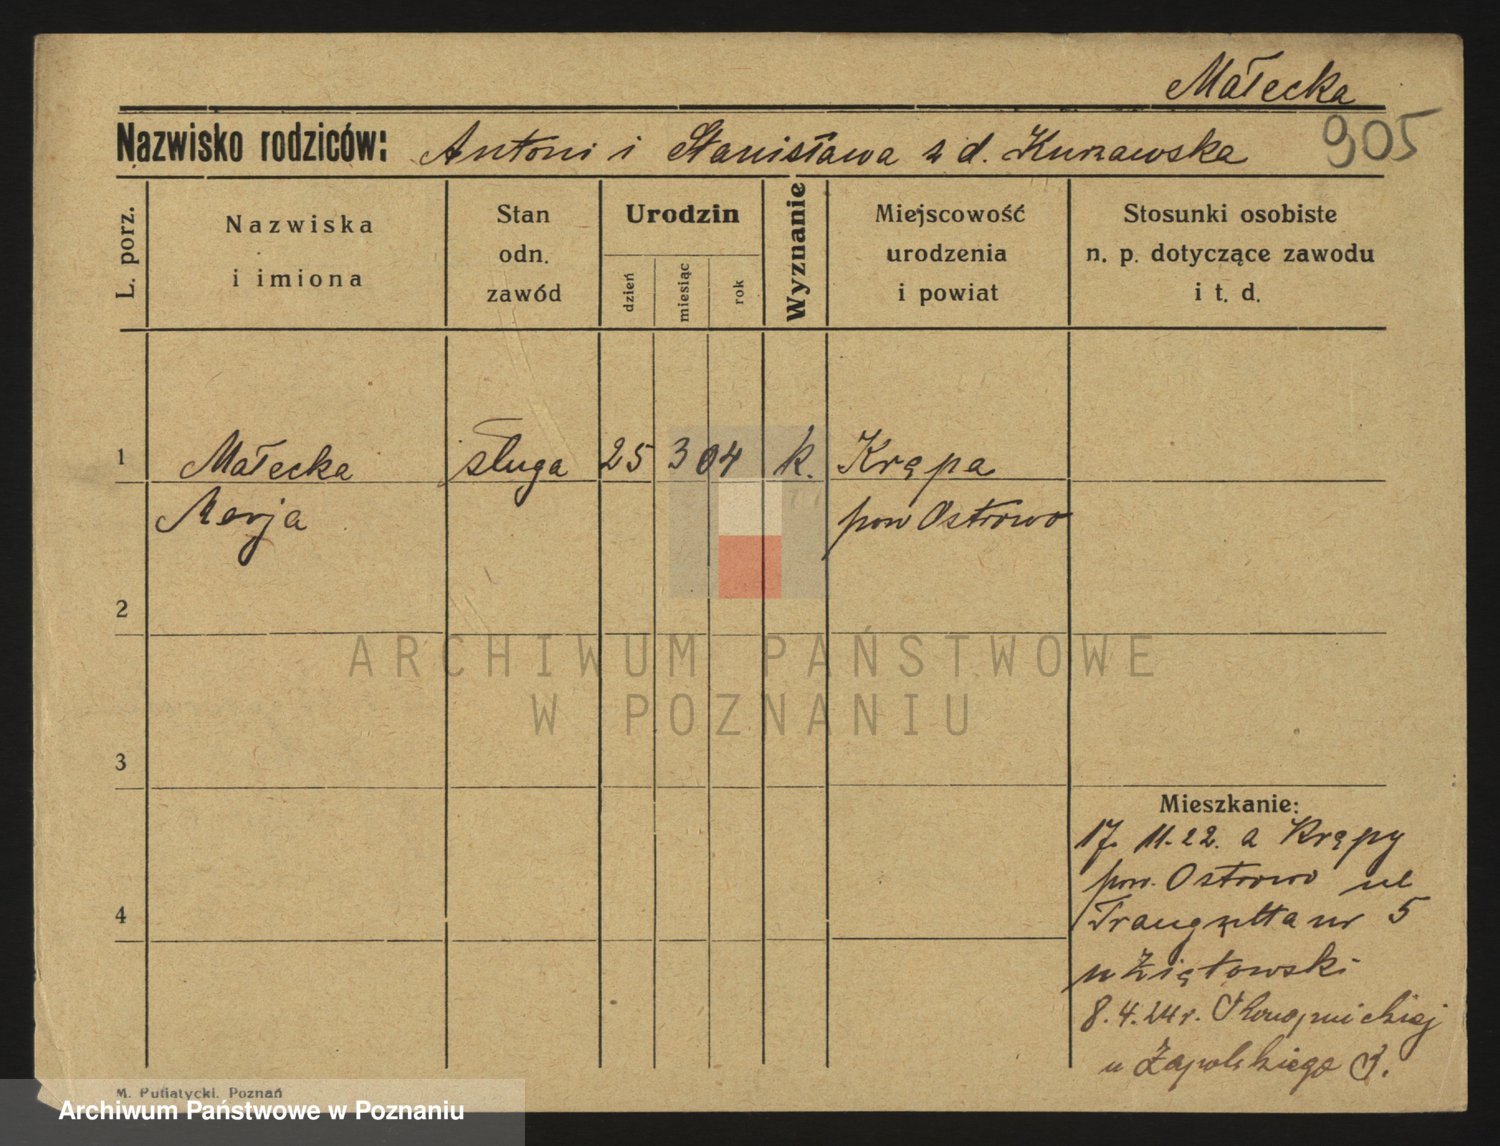 Małecka
905
Nazwisko rodziców: Antoni i Stanisława z d. Kurzawska
L. porz.
Nazwiska
i imiona
Stan
odn.
zawód
Urodzin
dzień
miesiąc
rok
Wyznanie
Miejscowość
urodzenia
i powiat
Stosunki osobiste
n. p. dotyczące zawodu
i t. d.
1 Małecka sługa 25 3 04 k. Krępa
Marja pow Ostrowo
2
ARCHIWUM PAŃSTWOWE
W POZNANIU
3
Mieszkanie:
17. 11. 22. a Krępy
pow. Ostrowo ul
4
Traugutta nr 5
u Ziętowski
8. 4. 24 r. Konopnickiej
u Zapolskiego
M. Putiatycki. Poznań
Archiwum Państwowe w Poznaniu